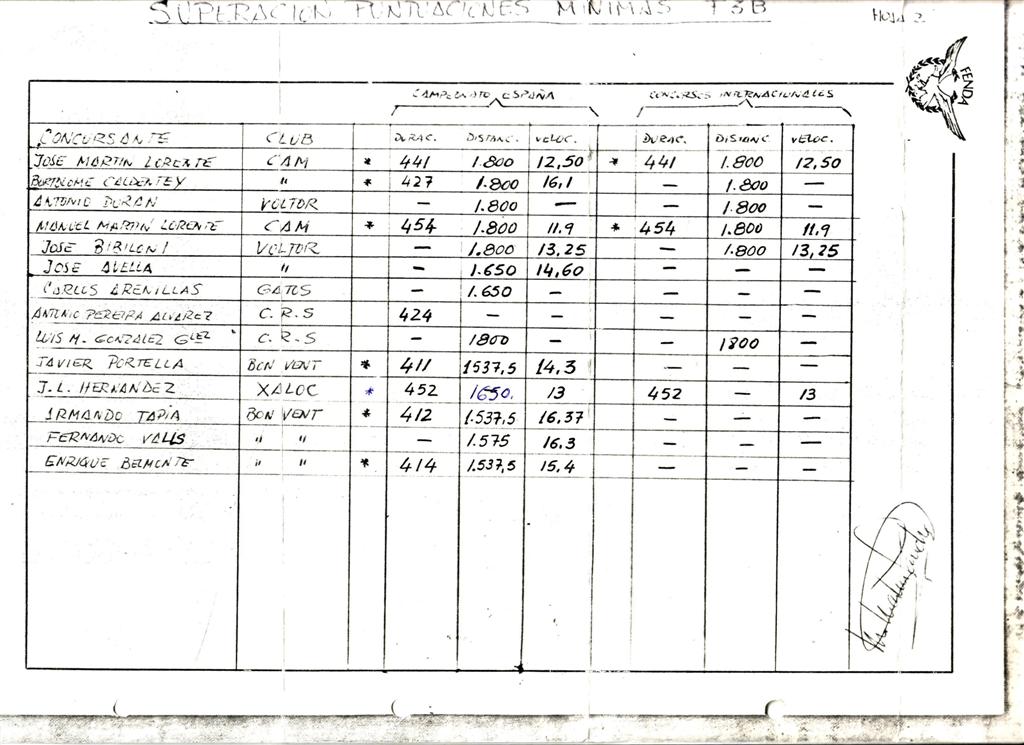 SUPERACION PUNTUACIONES MINIMAS F3B
HOJA 2
FENDA
CAMPEONATO ESPAÑA CONCURSOS INTERNACIONALES
CONCURSANTE CLUB DURAC. DISTANC. VELOC. DURAC. DISTANC VELOC.
JOSE MARTIN LORENTE CAM * 441 1.800 12,50 * 441 1.800 12,50
BARTOLOME CALDENTEY " * 427 1.800 16,1 — 1.800 —
ANTONIO DURAN VOLTOR — 1.800 — — 1.800 —
MANUEL MARTIN LORENTE CAM * 454 1.800 11.9 * 454 1.800 11.9
JOSE BIBILONI VOLTOR — 1.800 13,25 — 1.800 13,25
JOSE AVELLA " — 1.650 14,60 — — —
CARLOS ARENILLAS GATOS — 1.650 — — — —
ANTONIO PEREIRA ALVAREZ C.R.S 424 — — — — —
LUIS M. GONZALEZ GLEZ C.R.S — 1800 — — 1800 —
JAVIER PORTELLA BON VENT * 411 1537,5 14.3 — — —
J.L. HERNANDEZ XALOC * 452 1650. 13 452 — 13
ARMANDO TAPIA BON VENT * 412 1.537,5 16,37 — — —
FERNANDO VALLS " " — 1.575 16.3 — — —
ENRIQUE BELMONTE " " * 414 1.537,5 15.4 — — —